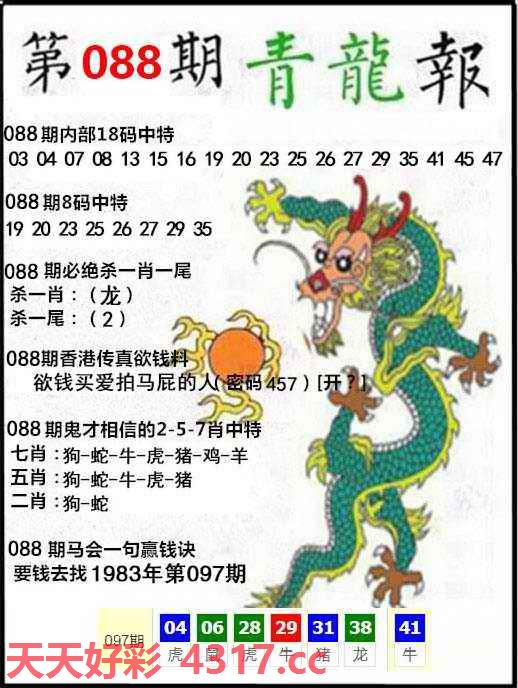 第088期 青龍報
088期内部18码中特
03 04 07 08 13 15 16 19 20 23 25 26 27 29 35 41 45 47
088期8码中特
19 20 23 25 26 27 29 35
088 期必绝杀一肖一尾
杀一肖：（龙）
杀一尾：（2）
088期香港传真欲钱料
欲钱买爱拍马屁的人(密码457）[开？]
088期鬼才相信的2-5-7肖中特
七肖：狗-蛇-牛-虎-猪-鸡-羊
五肖：狗-蛇-牛-虎-猪
二肖：狗-蛇
088 期马会一句赢钱诀
要钱去找1983年第097期
097期 04 06 28 29 31 38 41
虎 鼠 虎 牛 猪 龙 牛
天天好彩 4317.cc